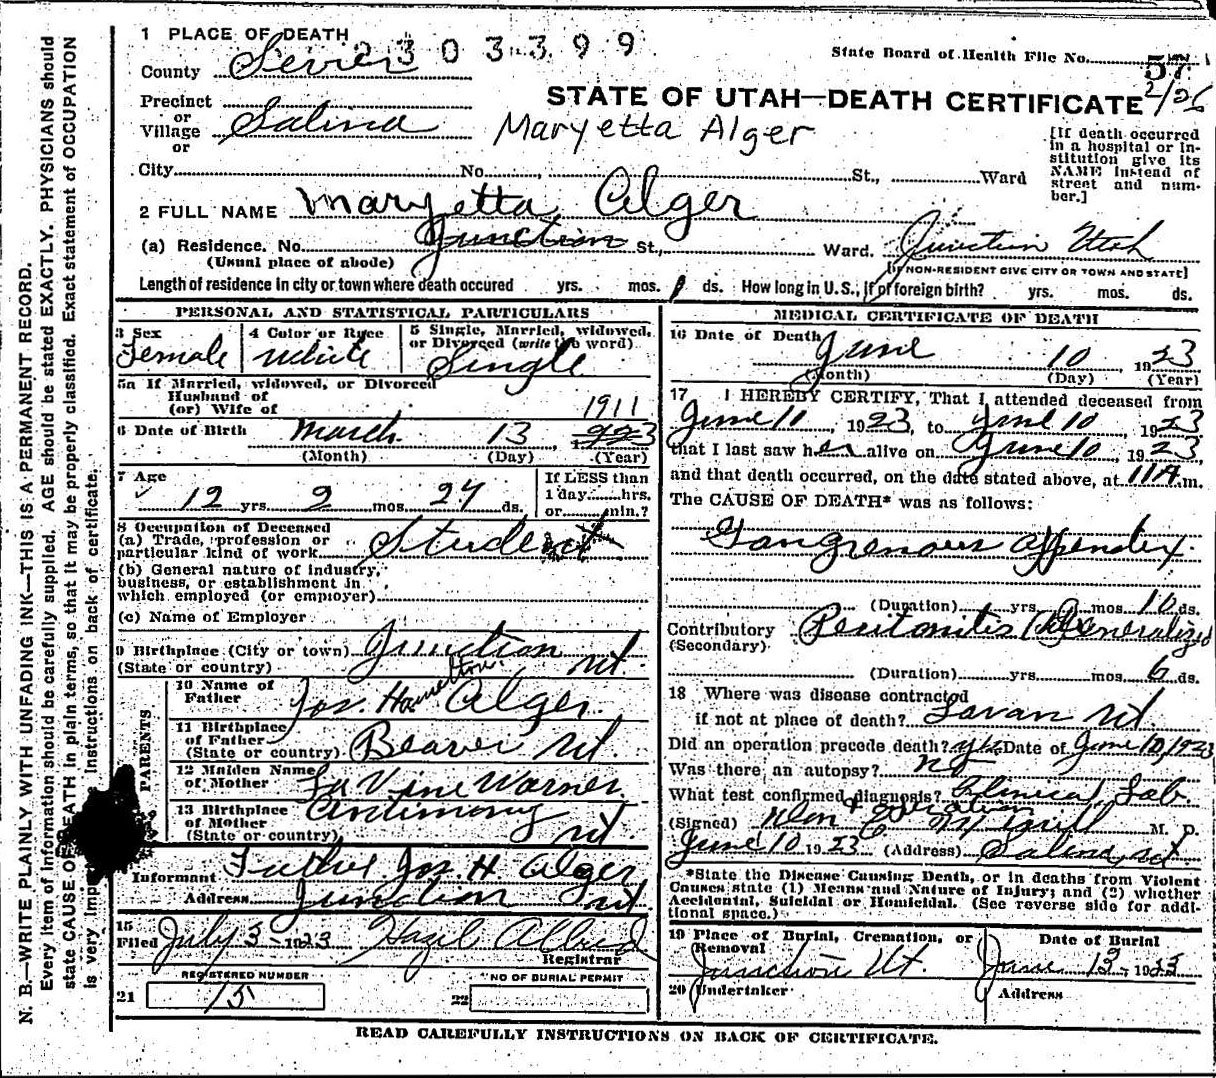 1 PLACE OF DEATH
2303399
State Board of Health File No. 57
County Sevier
2/26
STATE OF UTAH—DEATH CERTIFICATE
Precinct
or
Village Salina
or
Maryetta Alger
[If death occurred
in a hospital or in-
stitution give its
NAME instead of
street and num-
ber.]
City No. St., Ward
2 FULL NAME Maryetta Alger
(a) Residence. No. Junction St., Ward. Junction Utah
(Usual place of abode) [If NON-RESIDENT GIVE CITY OR TOWN AND STATE]
Length of residence in city or town where death occured yrs. mos. ds. How long in U.S., if of foreign birth? yrs. mos. ds.
PERSONAL AND STATISTICAL PARTICULARS
3 Sex 4 Color or Race 5 Single, Married, widowed,
or Divorced (write the word)
Female White Single
5a If Married, widowed, or Divorced
Husband of
(or) Wife of
1911
6 Date of Birth March 13
(Month) (Day) (Year)
7 Age If LESS than
12 yrs. 2 mos. 27 ds. 1 day hrs.
or min.?
8 Occupation of Deceased
(a) Trade, profession or
particular kind of work Student
(b) General nature of industry,
business, or establishment in
which employed (or employer)
(c) Name of Employer
9 Birthplace (City or town) Junction
(State or country) Ut.
PARENTS
10 Name of
Father Jos. Hamelton Alger
11 Birthplace
of Father
(State or country) Beaver Ut
12 Maiden Name
of Mother La Vine Warner
13 Birthplace Antimony
of Mother
(State or country) Ut.
Informant Father Jos. H. Alger
Address Junction Ut
15
Filed July 3 - 1923 Hazel Allred
Registrar
REGISTERED NUMBER NO OF BURIAL PERMIT
21 15 22
MEDICAL CERTIFICATE OF DEATH
16 Date of Death
June 10, 1923
(Month) (Day) (Year)
17 I HEREBY CERTIFY, That I attended deceased from
June 10, 1923, to June 10, 1923
that I last saw her alive on June 10, 1923
and that death occurred, on the date stated above, at 11 A.m.
The CAUSE OF DEATH* was as follows:
Gangrenous appendix
(Duration) yrs. mos. 10 ds.
Contributory Peritonitis Generalized
(Secondary)
(Duration) yrs. mos. 6 ds.
18 Where was disease contracted
if not at place of death? Lavan Ut.
Did an operation precede death? yes Date of June 10, 1923
Was there an autopsy? no
What test confirmed diagnosis? Clinical, Lab.
+ Operation
(Signed) M. D.
June 10 1923 (Address) Salina, Ut
*State the Disease Causing Death, or in deaths from Violent
Causes state (1) Means and Nature of Injury; and (2) whether
Accidental, Suicidal or Homicidal. (See reverse side for addi-
tional space.)
19 Place of Burial, Cremation, or
Removal
Junction Ut.
Date of Burial
June 13 - 1923
20 Undertaker Address
READ CAREFULLY INSTRUCTIONS ON BACK OF CERTIFICATE.
N. B.—WRITE PLAINLY WITH UNFADING INK—THIS IS A PERMANENT RECORD.
Every item of information should be carefully supplied. AGE should be stated EXACTLY. PHYSICIANS should
state CAUSE OF DEATH in plain terms, so that it may be properly classified. Exact statement of OCCUPATION
is very Instructions on back of certificate.